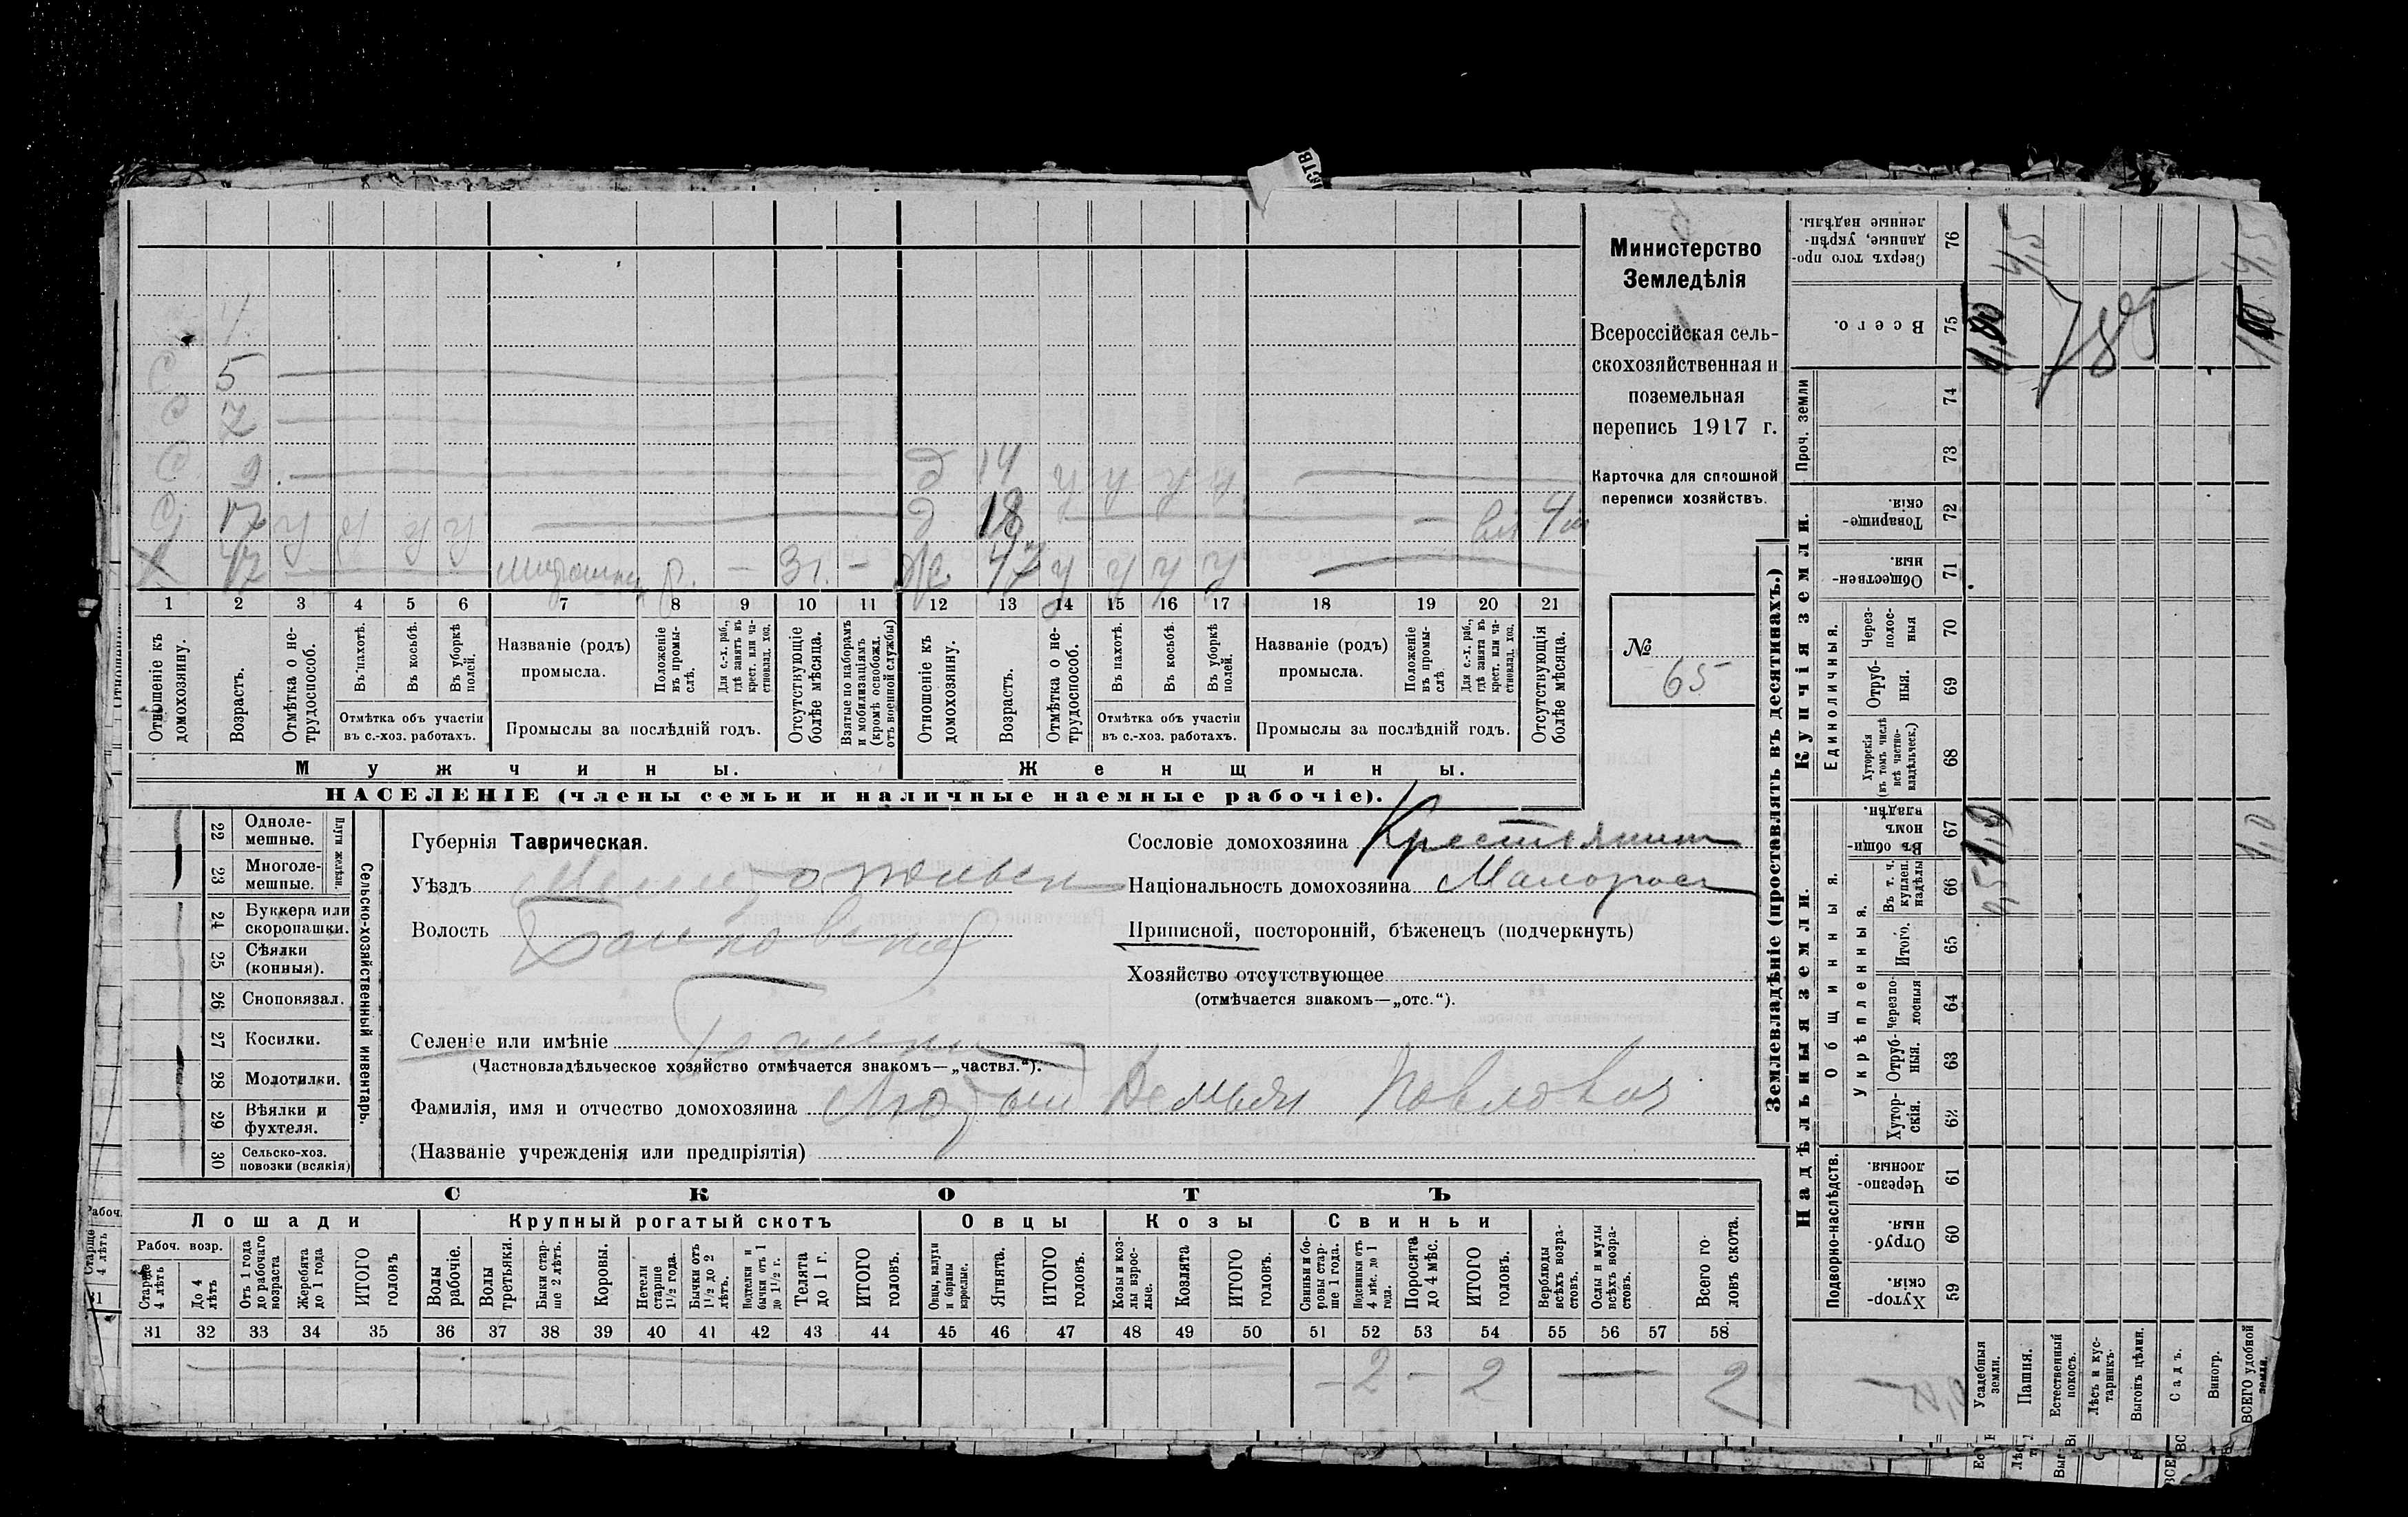 Министерство
Земледѣлія
Всероссійская сель-
скохозяйственная и
поземельная
перепись 1917 г.
Карточка для сплошной
переписи хозяйствъ.
№
65
С 5
С 7
С 9 д 14 у у у у
С 17 у у у у д 18
Х 47 р. – 3 г. – Ж 47 у у у у
1 2 3 4 5 6 7 8 9 10 11 12 13 14 15 16 17 18 19 20 21
Отношеніе къ домохозяину.
Возрастъ.
Отмѣтка о не-трудоспособ.
Въ пахотѣ.
Въ косьбѣ.
Въ уборкѣ полей.
Отмѣтка объ участіи
въ с.-хоз. работахъ.
Названіе (родъ)
промысла.
Положеніе въ промы-слѣ.
Для с.-х. раб., гдѣ занятъ въ крест. или ча-стновлад. хоз.
Промыслы за послѣдній годъ.
Отсутствующіе болѣе мѣсяца.
Взятые по наборамъ и мобилизаціямъ (кромѣ освобожд. отъ военной службы)
Отношеніе къ домохозяину.
Возрастъ.
Отмѣтка о не-трудоспособ.
Въ пахотѣ.
Въ косьбѣ.
Въ уборкѣ полей.
Отмѣтка объ участіи
въ с.-хоз. работахъ.
Названіе (родъ)
промысла.
Положеніе въ промы-слѣ
Для с.-х. раб., гдѣ занята въ крест. или ча-стновлад. хоз.
Промыслы за послѣдній годъ.
Отсутствующія болѣе мѣсяца.
Мужчины.
Женщины.
НАСЕЛЕНІЕ (члены семьи и наличные наемные рабочіе).
22 Одноле-мешные.
23 Многоле-мешные.
Плуги желѣзн.
24 Буккера или скоропашки.
25 Сѣялки (конныя).
26 Сноповязал.
27 Косилки.
28 Молотилки.
29 Вѣялки и фухтеля.
30 Сельско-хоз. повозки (всякія)
Сельско-хозяйственный инвентарь.
Губернія Таврическая.
Уѣздъ
Волость
Селеніе или имѣніе
(Частновладѣльческое хозяйство отмѣчается знакомъ—„частвл.“).
Фамилія, имя и отчество домохозяина Демьян Павлович
(Названіе учрежденія или предпріятія)
Сословіе домохозяина Крестьянин
Національность домохозяина Малорос
Приписной, посторонній, бѣженецъ (подчеркнуть)
Хозяйство отсутствующее
(отмѣчается знакомъ—„отс.“).
СКОТЪ
Лошади
Крупный рогатый скотъ
Овцы
Козы
Свиньи
Рабоч. возр.
Старше 4 лѣтъ
До 4 лѣтъ
Отъ 1 года до рабочаго возраста
Жеребята до 1 года
ИТОГО головъ
Волы рабочіе.
Волы третьяки.
Быки стар-ше 2 лѣтъ.
Коровы.
Нетели старше 1½ года.
Бычки отъ 1½ до 2 лѣтъ.
Подтелки и бычки отъ 1 до 1½ г.
Телята до 1 г.
ИТОГО головъ.
Овцы, валухи и бараны взрослые.
Ягнята.
ИТОГО головъ.
Козы и коз-лы взрос-лые.
Козлята
ИТОГО головъ.
Свиньи и бо-ровы стар-ше 1 года.
Подсвинки отъ 4 мѣс. до 1 года.
Поросята до 4 мѣс.
ИТОГО головъ.
Верблюды всѣхъ возра-стовъ.
Ослы и мулы всѣхъ возра-стовъ.
Всего го-ловъ скота.
31 32 33 34 35 36 37 38 39 40 41 42 43 44 45 46 47 48 49 50 51 52 53 54 55 56 57 58
– 2 – 2 — 2
Землевладѣніе (проставлять въ десятинахъ.)
Надѣльныя земли.
Купчія земли.
Подворно-наслѣдств.
Общинныя.
Укрѣпленныя.
Единоличныя.
Проч. земли
59 Хутор-скія.
60 Отруб-ныя.
61 Черезпо-лосныя.
62 Хутор-скія.
63 Отруб-ныя.
64 Черезпо-лосныя
65 Итого.
66 Въ т. ч. куплен. надѣлы
67 Въ общин-номъ владѣн.
68 Хуторскія (въ томъ числѣ всѣ частно-владѣльческ.)
69 Отруб-ныя.
70 Через-полос-ныя
71 Обществен-ныя.
72 Товарище-скія.
73
74
75 Всего.
76 Сверхъ того про-данные, укрѣп-ленные надѣлы.
Усадебныя земли.
Пашня.
Естественный покосъ.
Лѣсъ и кус-тарникъ.
Выгонъ цѣлин.
Садъ.
Виногр.
ВСЕГО удобной земли.
785